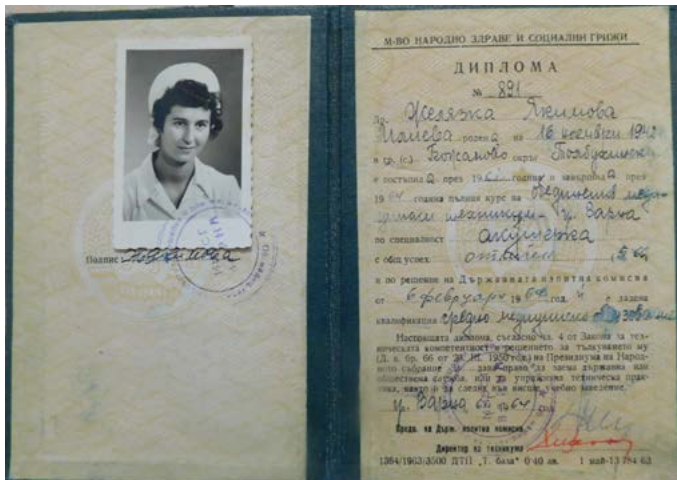 Подпис:
М-ВО НАРОДНО ЗДРАВЕ И СОЦИАЛНИ ГРИЖИ
ДИПЛОМА
№ 891
Др. Желязка Якимова
родена на 16 1942
в гр. (с.) Божаново окръг Толбухински
е постъпила през 19 година и завършила през
1964 година пълния курс на
техникум - гр. Варна
по специалност акушерка
с общ успех отличен
и по решение на Държавната изпитна комисия
от 6 февруари 1964 год. ѝ е дадена
квалификация средно медицинско
Настоящата диплома, съгласно чл. 4 от Закона за тех-
ническата компетентност и решението за тълкуването му
(Д. в. бр. 66 от 1950 год.) на Президиума на Народ-
ното събрание дава право да заема държавна или
обществена служба, или да упражнява техническа прак-
тика, както и да следва във висше учебно заведение.
гр. Варна 1964 год.
Предс. на Държ. изпитна комисия
Директор на техникума
1364/1963/3500 ДТП „Т. база“ 0·40 лв. 1 май-13 784 63